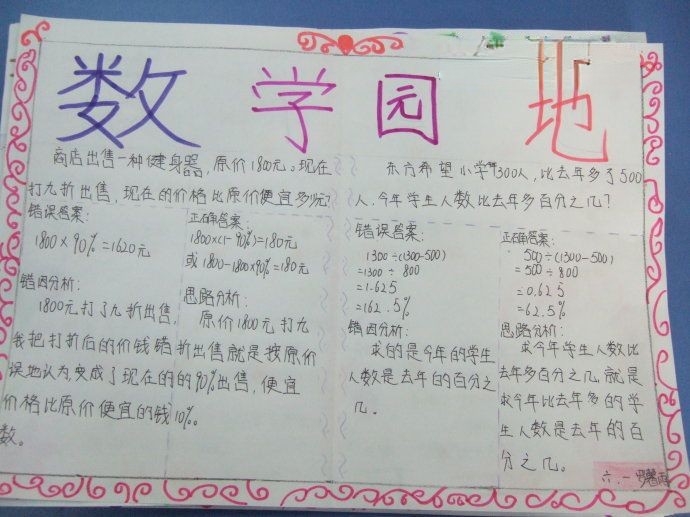 数学园地
商店出售一种健身器，原价1800元。现在
打九折出售，现在的价格比原价便宜多少元？
错误答案：
1800×90%=1620元
错因分析：
1800元打了九折出售，
我把打折后的价钱错
误地认为，变成了现在的
价格比原价便宜的钱
数。
正确答案：
1800×(1-90%)=180元
或1800-1800×90%=180元
思路分析：
原价1800元打九
折出售就是按原价
的90%出售，便宜
10%。
东方希望小学有1300人，比去年多了500
人，今年学生人数比去年多百分之几？
错误答案：
1300÷(1300-500)
=1300÷800
=1.625
=162.5%
错因分析：
求的是今年的学生
人数是去年的百分之
几。
正确答案：
500÷(1300-500)
=500÷800
=0.625
=62.5%
思路分析：
求今年学生人数比
去年多百分之几，就是
求今年比去年多的学
生人数是去年的百
分之几。
六.一